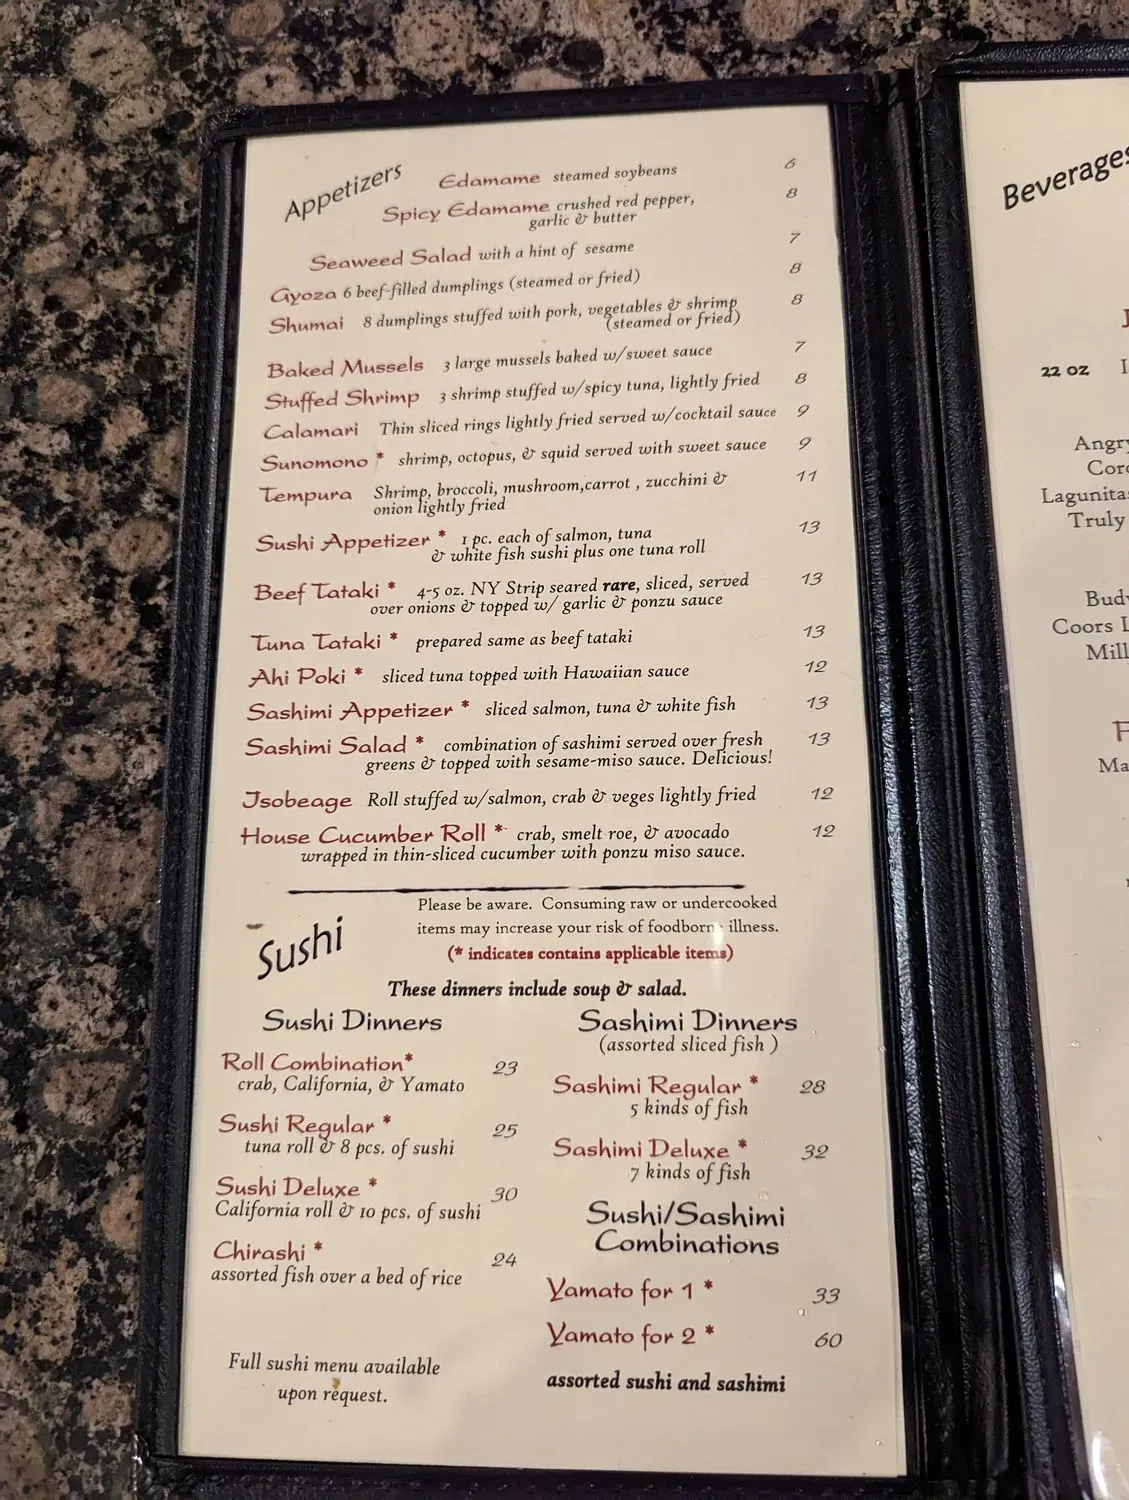 Appetizers
Edamame steamed soybeans 6
Spicy Edamame crushed red pepper, 8
garlic & butter
Seaweed Salad with a hint of sesame 7
Gyoza 6 beef-filled dumplings (steamed or fried) 8
Shumai 8 dumplings stuffed with pork, vegetables & shrimp 8
(steamed or fried)
Baked Mussels 3 large mussels baked w/sweet sauce 7
Stuffed Shrimp 3 shrimp stuffed w/spicy tuna, lightly fried 8
Calamari Thin sliced rings lightly fried served w/cocktail sauce 9
Sunomono * shrimp, octopus, & squid served with sweet sauce 9
Tempura Shrimp, broccoli, mushroom,carrot , zucchini & 11
onion lightly fried
Sushi Appetizer * 1 pc. each of salmon, tuna 13
& white fish sushi plus one tuna roll
Beef Tataki * 4-5 oz. NY Strip seared rare, sliced, served 13
over onions & topped w/ garlic & ponzu sauce
Tuna Tataki * prepared same as beef tataki 13
Ahi Poki * sliced tuna topped with Hawaiian sauce 12
Sashimi Appetizer * sliced salmon, tuna & white fish 13
Sashimi Salad * combination of sashimi served over fresh 13
greens & topped with sesame-miso sauce. Delicious!
Isobeage Roll stuffed w/salmon, crab & veges lightly fried 12
House Cucumber Roll * crab, smelt roe, & avocado 12
wrapped in thin-sliced cucumber with ponzu miso sauce.
Please be aware. Consuming raw or undercooked
items may increase your risk of foodborne illness.
(* indicates contains applicable items)
Sushi
These dinners include soup & salad.
Sushi Dinners
Roll Combination* 23
crab, California, & Yamato
Sushi Regular * 25
tuna roll & 8 pcs. of sushi
Sushi Deluxe * 30
California roll & 10 pcs. of sushi
Chirashi * 24
assorted fish over a bed of rice
Full sushi menu available
upon request.
Sashimi Dinners
(assorted sliced fish )
Sashimi Regular * 28
5 kinds of fish
Sashimi Deluxe * 32
7 kinds of fish
Sushi/Sashimi
Combinations
Yamato for 1 * 33
Yamato for 2 * 60
assorted sushi and sashimi
Beverages
22 OZ
Angry
Lagunitas
Truly
Coors